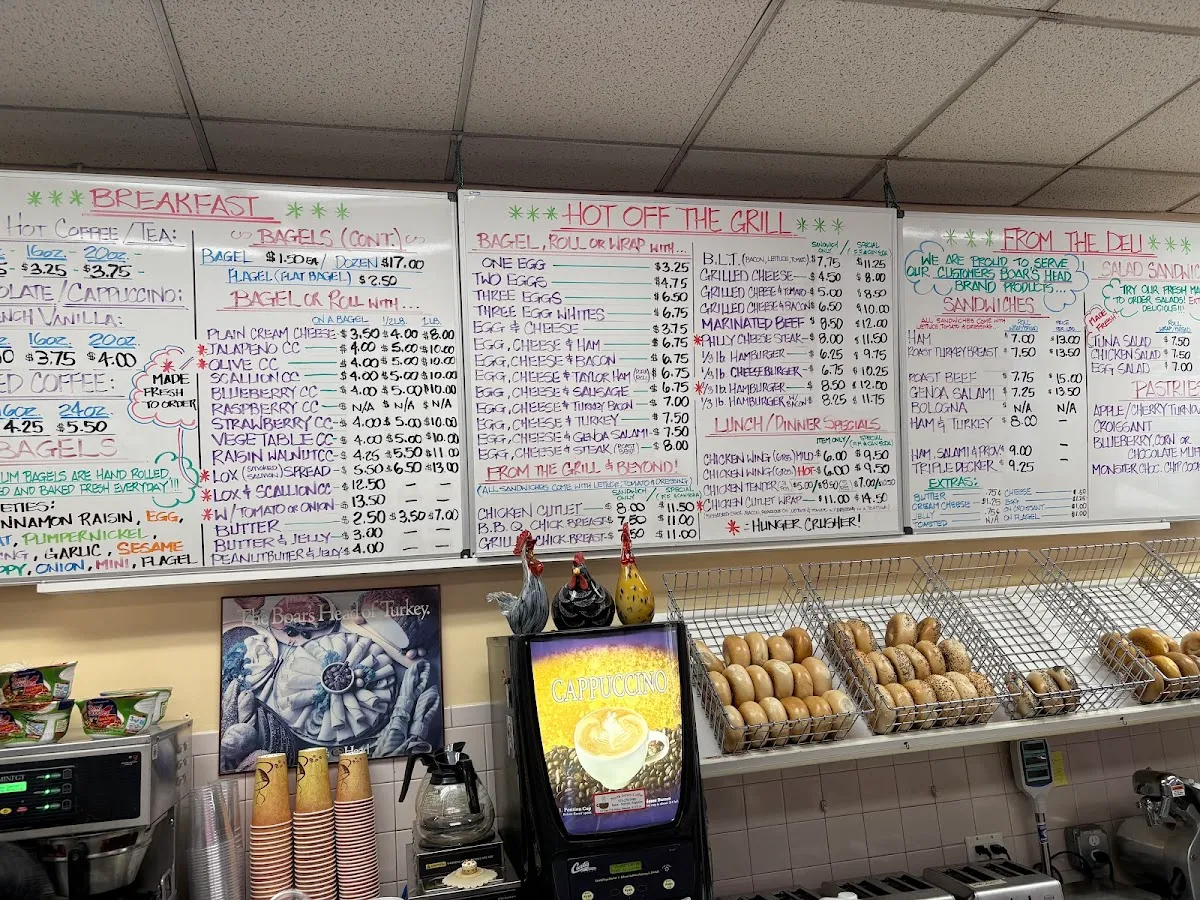 *** BREAKFAST ***
HOT COFFEE/TEA:
16oz. 20oz.
$3.25 - $3.75 -
OLATE/CAPPUCCINO:
NCH VANILLA:
16oz. 20oz.
$3.75 $4.00
ED COFFEE:
24oz.
4.25 $5.50
BAGELS
UM BAGELS ARE HAND ROLLED
ED AND BAKED FRESH EVERYDAY!!!
ETIES:
NNAMON RAISIN, EGG,
AT, PUMPERNICKEL,
ING, GARLIC, SESAME
PPY, ONION, MINI, FLAGEL
BAGELS (CONT.)
BAGEL $1.50EA/DOZEN $17.00
FLAGEL (FLAT BAGEL) $2.50
BAGEL OR ROLL WITH...
MADE FRESH TO ORDER
ON A BAGEL 1/2 LB. 1 LB.
PLAIN CREAM CHEESE - $3.50 $4.00 $8.00
*JALAPENO CC $4.00 $5.00 $10.00
*OLIVE CC $4.00 $5.00 $10.00
SCALLION CC $4.00 $5.00 $10.00
BLUEBERRY CC $4.00 $5.00 $10.00
RASPBERRY CC $N/A $N/A $N/A
STRAWBERRY CC $4.00 $5.00 $10.00
VEGETABLE CC $4.00 $5.00 $10.00
RAISIN WALNUT CC $4.25 $5.50 $11.00
*LOX (SMOKED SALMON) SPREAD $5.50 $6.50 $13.00
*LOX & SCALLION CC $12.50 - -
*W/TOMATO OR ONION $13.50 - -
BUTTER $2.50 $3.50 $7.00
BUTTER & JELLY $3.00 - -
PEANUTBUTTER & JELLY $4.00 - -
*** HOT OFF THE GRILL ***
BAGEL, ROLL OR WRAP WITH...
ONE EGG $3.25
TWO EGGS $4.75
THREE EGGS $6.50
THREE EGG WHITES $6.75
EGG & CHEESE $3.75
EGG, CHEESE & HAM $6.75
EGG, CHEESE & BACON $6.75
EGG, CHEESE & TAYLOR HAM $6.75
EGG, CHEESE & SAUSAGE $6.75
EGG, CHEESE & TURKEY BACON $7.00
EGG, CHEESE & TURKEY $7.50
EGG, CHEESE & GENOA SALAMI $7.50
EGG, CHEESE & STEAK $8.00
FROM THE GRILL & BEYOND!
(ALL SANDWICHES COME WITH LETTUCE, TOMATO & DRESSING)
SANDWICH ONLY / SPECIAL
CHICKEN CUTLET 8.00 $11.50
B.B.Q. CHICK BREAST 11.00
GRILL CHICK BREAST 11.00
SANDWICH ONLY / SPECIAL
B.L.T. (BACON, LETTUCE, TOMATO) $7.75 $11.25
GRILLED CHEESE $4.50 $8.00
GRILLED CHEESE & TOMATO $5.00 $8.50
GRILLED CHEESE & BACON $6.50 $10.00
MARINATED BEEF $8.50 $12.00
*PHILLY CHEESE STEAK $8.00 $11.50
1/3 lb. HAMBURGER $6.25 $9.75
1/3 lb. CHEESEBURGER $6.75 $10.25
*1/3 lb. HAMBURGER $8.50 $12.00
1/3 lb. HAMBURGER W/BACON $8.25 $11.75
LUNCH/DINNER SPECIALS
ITEM ONLY / SPECIAL
CHICKEN WING (6pcs) MILD $6.00 $9.50
CHICKEN WING (6pcs) HOT $6.00 $9.50
*CHICKEN CUTLET WRAP $11.00 $14.50
* - HUNGER CRUSHER!
*** FROM THE DELI ***
WE ARE PROUD TO SERVE
OUR CUSTOMERS BOAR'S HEAD
BRAND PRODUCTS...
SANDWICHES
ALL SANDWICHES COME WITH
LETTUCE TOMATO & DRESSING
HAM $7.00 $13.00
ROAST TURKEY BREAST $7.50 $13.50
ROAST BEEF $7.75 $15.00
GENOA SALAMI $7.25 $13.50
BOLOGNA N/A N/A
HAM & TURKEY $8.00 -
HAM, SALAMI & PROV. $9.00 -
TRIPLE DECKER $9.25 -
EXTRAS:
BUTTER .75¢ CHEESE
CREAM CHEESE
JELLY
TOASTED N/A ON FLAGEL
SALAD SANDWIC
MADE FRESH
TRY OUR FRESH MA
TO ORDER SALADS!
DELICIOUS!!!
TUNA SALAD $7.50
CHICKEN SALAD $7.50
EGG SALAD $7.00
PASTRIE
APPLE/CHERRY TURNO
CROISSANT
BLUEBERRY, CORN OR
CHOCOLATE MUFF
MONSTER CHOC. CHIP COO
The Boar's Head of Turkey.
CAPPUCCINO